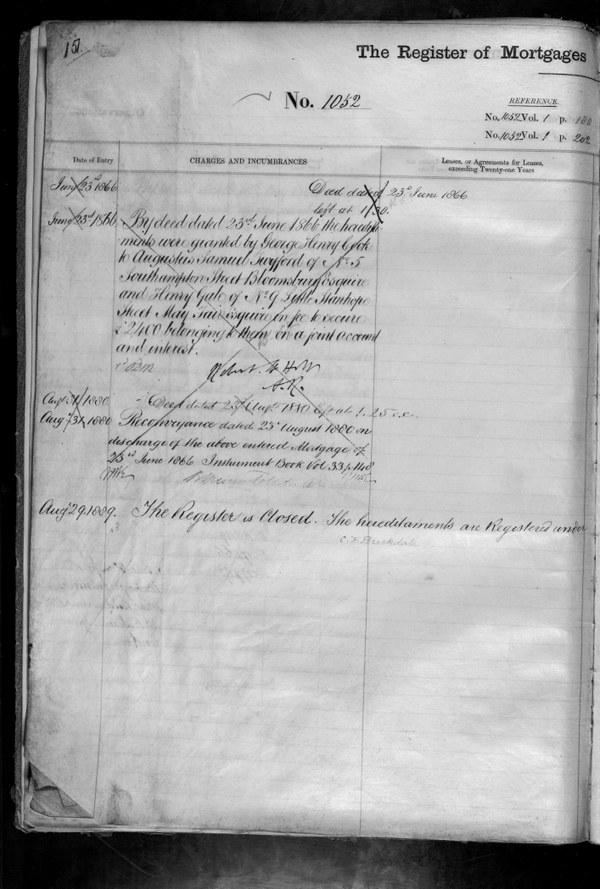 151
The Register of Mortgages
No. 1052
REFERENCE.
No. 1052 Vol. 1 p.
No. 1052 Vol. 1 p. 202
Date of Entry
CHARGES AND INCUMBRANCES
Leases, or Agreements for Leases,
exceeding Twenty-one Years
23d 1866 Deed dated 23d June 1866
left at 1.30.
23d 1866 By deed dated 23rd June 1866 the heredita-
ments were granted by George Henry Cook
to Augustus Samuel of No 5
Southampton Street Bloomsbury Esquire
and Henry Gale of No 9 Stanhope
Street May Fair Esquire in fee to secure
£2400 belonging to them on a joint account
and interest.
Robert H Holt
A.R.
Augt 31 1880 Deed dated 23d Augt 1880 left at 1.25
Augt 31 1880 Reconveyance dated 23d August 1880 on
discharge of the above entered Mortgage of
23rd June 1866 Instrument Book Vol 33 p.
Augt 29. 1889. The Register is Closed. The hereditaments are Registered under